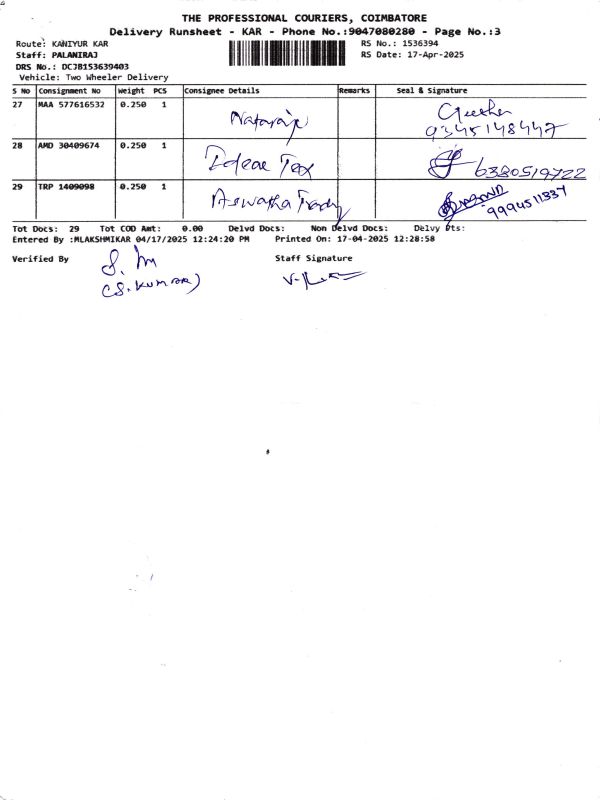 THE PROFESSIONAL COURIERS, COIMBATORE
Delivery Runsheet - KAR - Phone No.:9047080280 - Page No.:3
Route: KANIYUR KAR RS No.: 1536394
Staff: PALANIRAJ RS Date: 17-Apr-2025
DRS No.: DCJB153639403
Vehicle: Two Wheeler Delivery
S No Consignment No Weight PCS Consignee Details Remarks Seal & Signature
27 MAA 577616532 0.250 1 Nataraj Geetha
9345148447
28 AMD 30409674 0.250 1 Ideal Tex 6380519722
29 TRP 1409098 0.250 1 Aswatha Trady 9994511337
Tot Docs: 29 Tot COD Amt: 0.00 Delvd Docs: Non Delvd Docs: Delvy Pts:
Entered By :MLAKSHMIKAR 04/17/2025 12:24:20 PM Printed On: 17-04-2025 12:28:58
Verified By Staff Signature
(S. KUMAR)